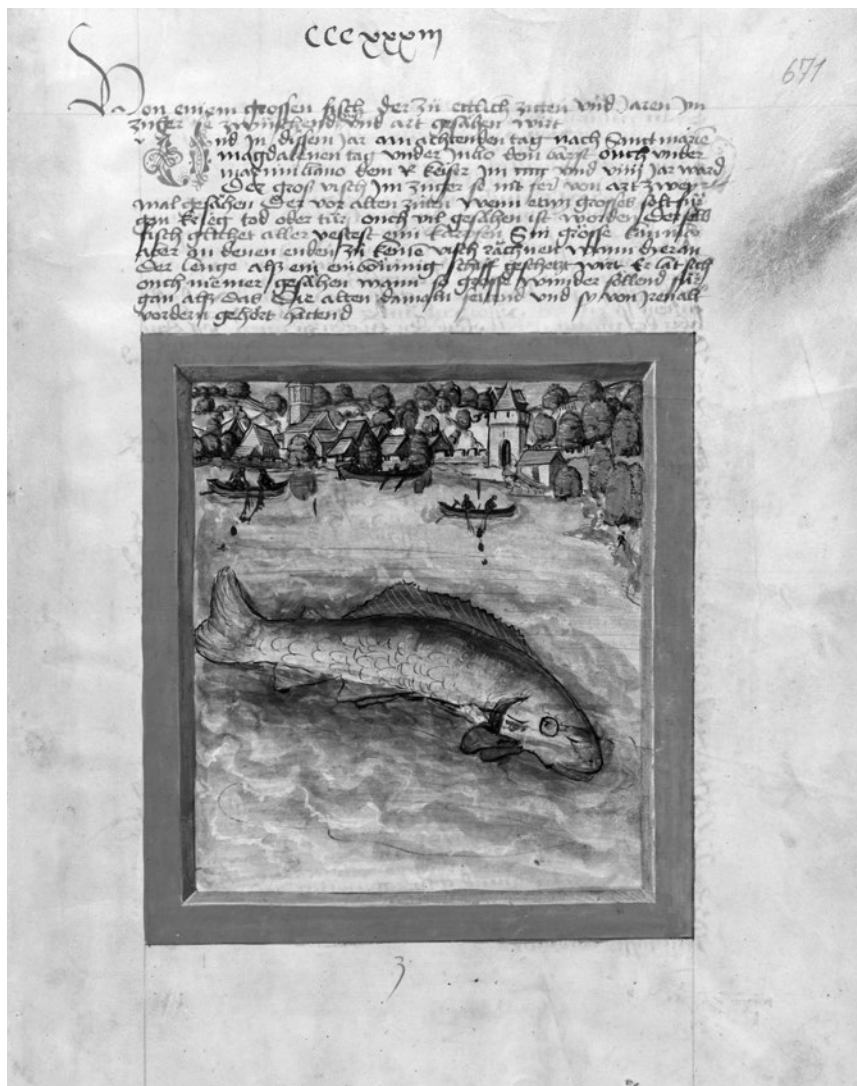 CCCxxxiii
671
Von einem grossen fisch der zů ettlich zitten vnd jaren jm
zuger se zwüschend vnd art gesähen wirt
Vnd in dissem jar am achtenden tag nach Sannt marie
magdalenen tag vnder Julio dem bapst ouch vnder
maximiliano dem R keiser jm vnd viiij jar ward
Der gros visch jm zuger se nit fer von art zwey
mal gesähen Der vor alten ziten wenn etwn grosses solt für
gan krieg tod oder türi ouch vil gesähen ist worden Der selb
fisch glichet aller vestest ein karpfen Sin grösse kan nüt
aber an denen enden zů keine visch rächnen wann er an
der lenge alß ein einböimig schiff geschetzt wirt Er lat sich
ouch niemer gesähen wann so grosse wunder sollend für
gan alß das Die alten damaln seitend vnd sy von jren alt
vordern gehört hattend
3